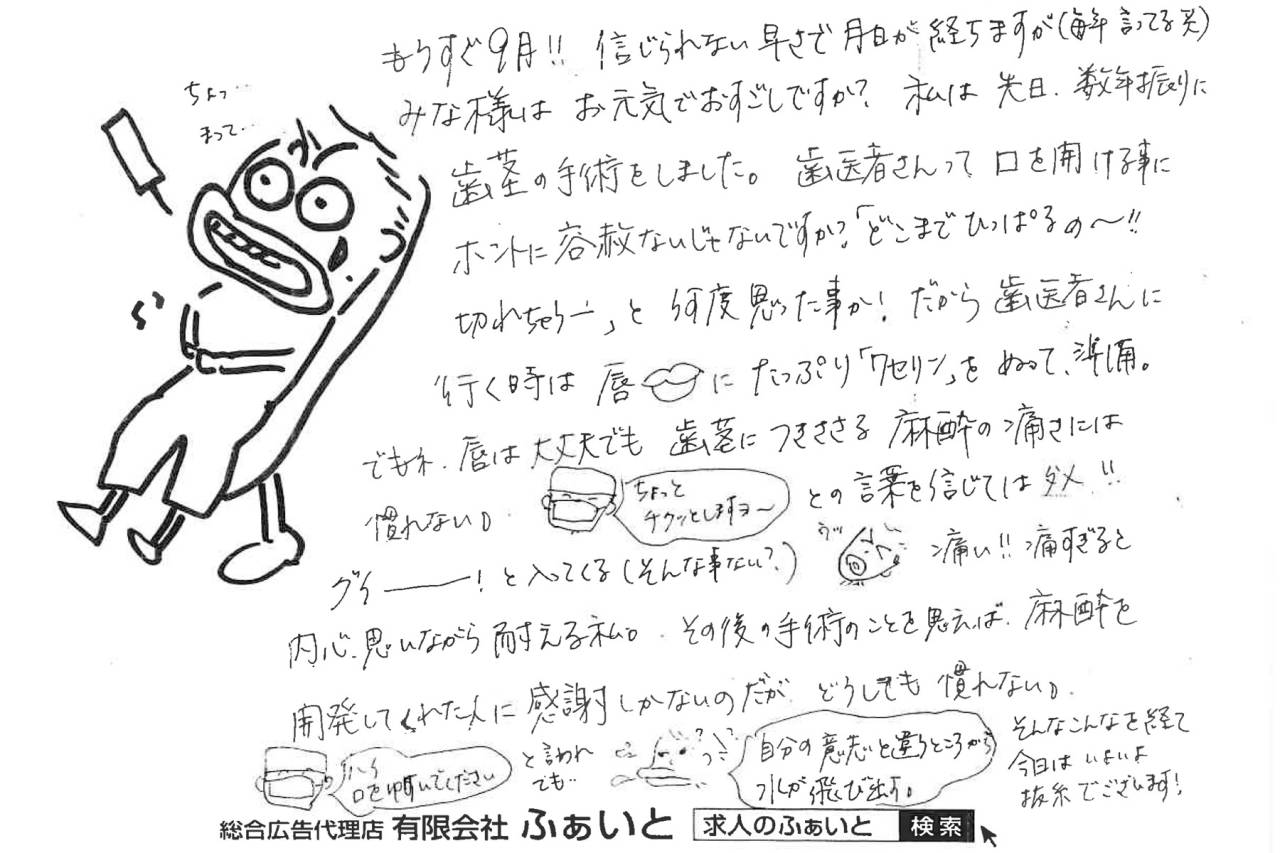 もうすぐ9月!! 信じられない早さで月日が経ちますが(毎年言ってる笑)
ちょっ…
まって…
みな様はお元気でおすごしですか? 私は先日、数年振りに
歯茎の手術をしました。歯医者さんって口を開ける事に
ホントに容赦ないじゃないですか?「どこまでひっぱるの〜!!
切れちゃうー」と何度思った事か!だから歯医者さんに
行く時は唇にたっぷり「ワセリン」をぬって、準備。
でもネ、唇は大丈夫でも歯茎につきささる麻酔の痛さには
慣れない。
ちょっと
チクッとしますヨ〜
との言葉を信じてはダメ!!
グイーーー!と入ってくる(そんな事ない?)
ウッ
痛い!!痛すぎると
内心、思いながら耐える私。その後の手術のことを思えば、麻酔を
開発してくれた人に感謝しかないのだが、どうしても慣れない。
ハイ
口をゆすいでください
と言われ
でも…
自分の意志と違うところから
水が飛び出す。
そんなこんなを経て
今日はいよいよ
抜糸でございます!
総合広告代理店 有限会社 ふぁいと 求人のふぁいと 検索